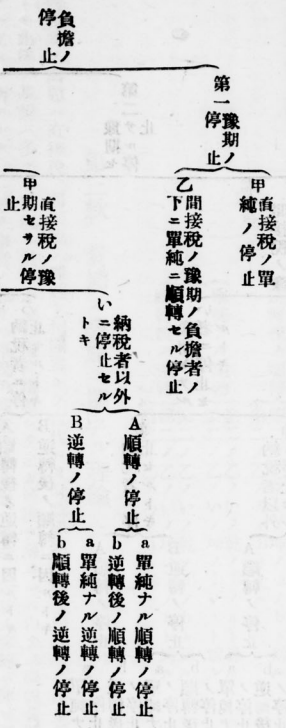 負擔ノ
停止
第一豫期ノ
停止
甲直接稅ノ單
純ノ停止
乙間接稅ノ豫期ノ負擔者ノ
下ニ單純ニ順轉セル停止
甲直接稅ノ豫
期セザル停
止
い納稅者以外
ニ停止セル
トキ
A順轉ノ停止
a單純ナル順轉ノ停止
b逆轉後ノ順轉ノ停止
B逆轉ノ停止
a單純ナル逆轉ノ停止
b順轉後ノ逆轉ノ停止